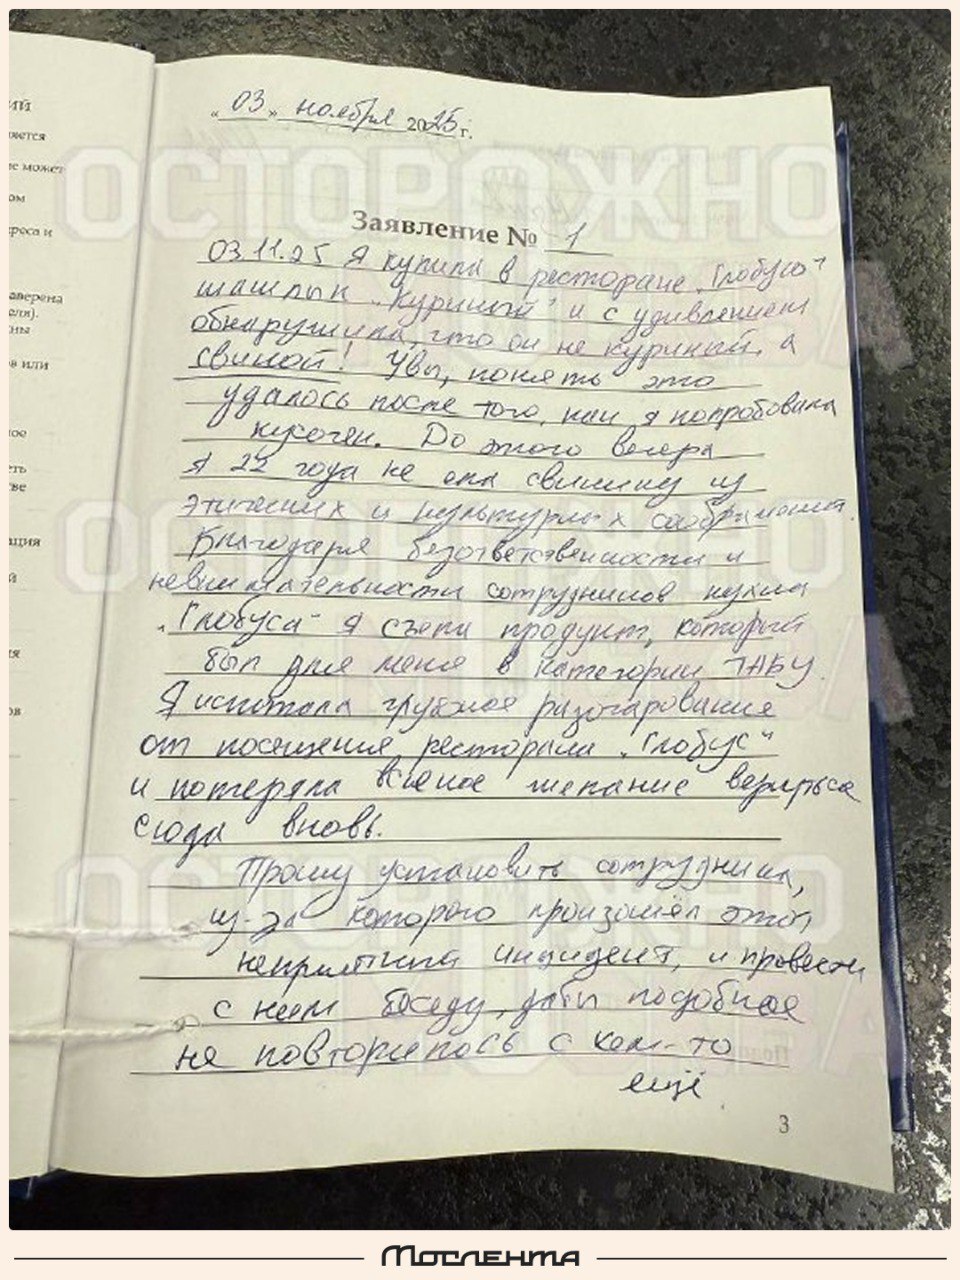 ий
яется
не может
ом
проса и
аверена
еля).
ны
в или
ное
еть
тве
ация
й
ия
ов
«03» ноября 2025 г.
Заявление № 1
03.11.25 Я купила в ресторане „Глобус“
шашлык „Куриный“ и с удивлением
обнаружила, что он не куриный, а
свиной! Увы, понять это
удалось после того, как я попробовала
кусочек. До этого вечера
я 22 года не ела свинину из
этических и культурных соображений.
Благодаря безответственности и
невнимательности сотрудников кухни
„Глобуса“ я съела продукт, который
был для меня в категории ТАБУ.
Я испытала глубокое разочарование
от посещения ресторана „Глобус“
и потеряла всякое желание вернуться
сюда вновь.
Прошу установить сотрудника,
из-за которого произошёл этот
неприятный инцидент, и провести
с ним беседу, дабы подобное
не повторилось с кем-то
ещё
3
ОСТОРОЖНО
МОСКВА
ОСТОРОЖНО
МОСКВА
ОСТОРОЖНО
МОСКВА
Мослента